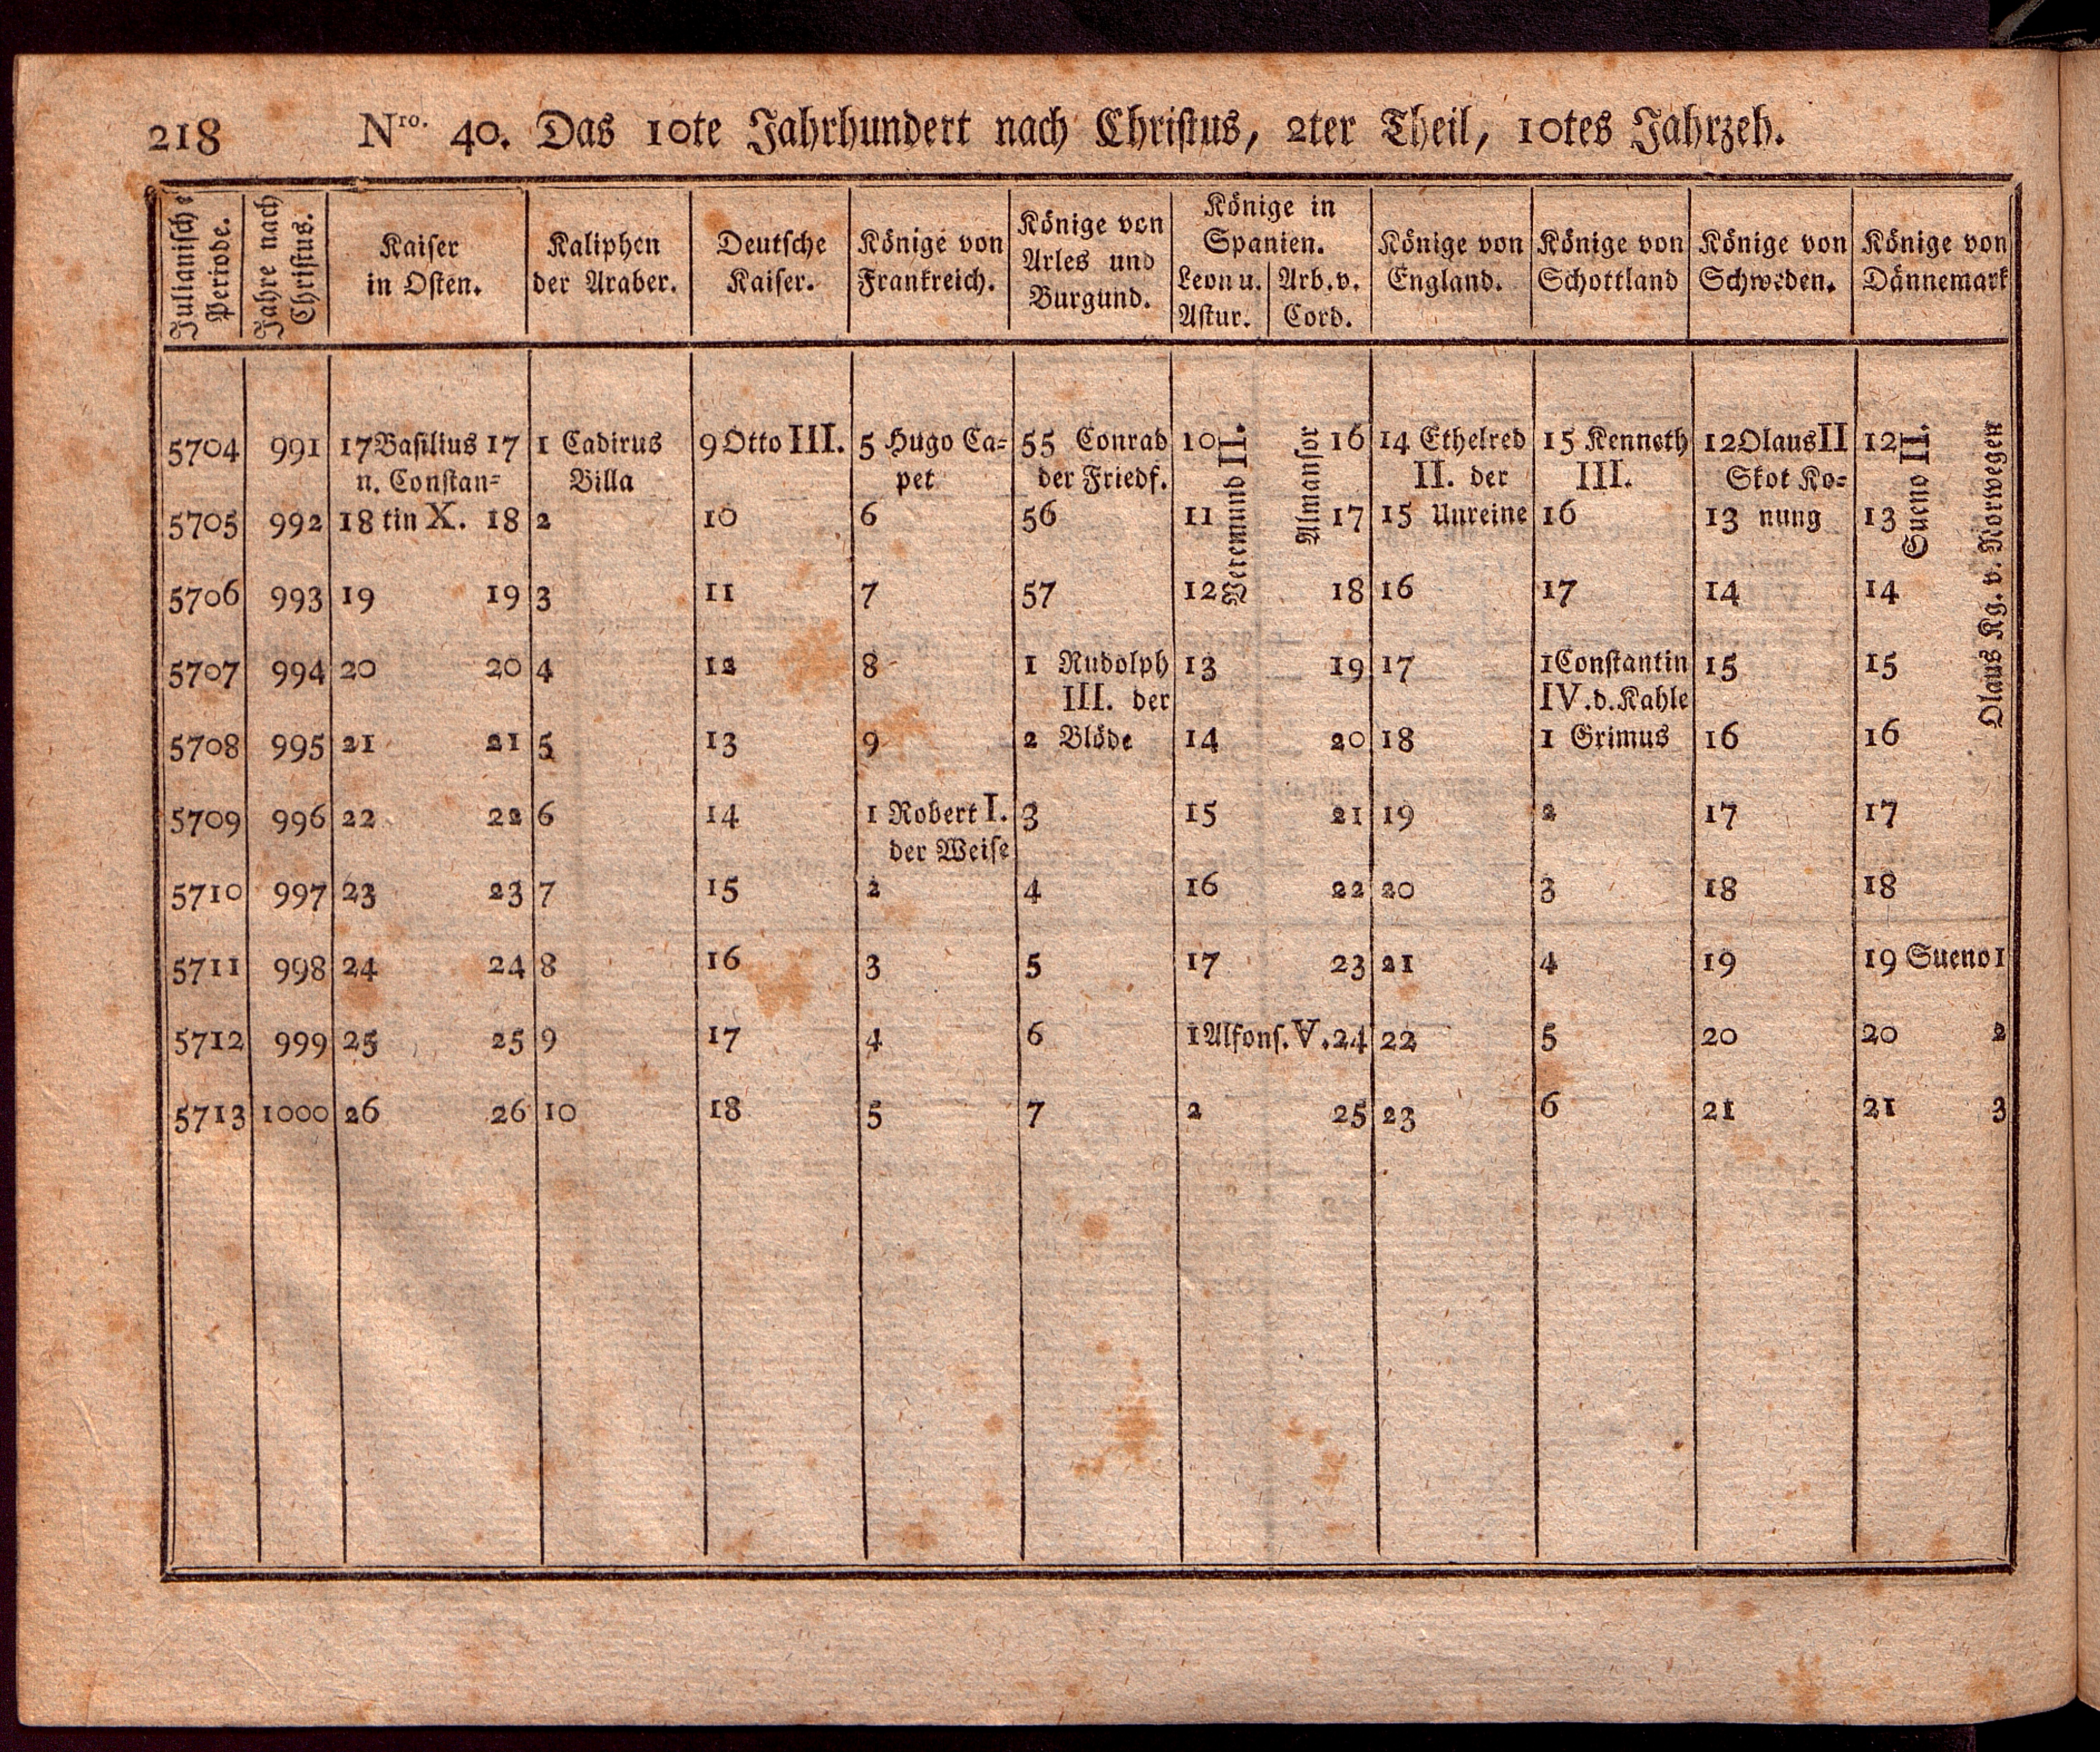 218 Nro. 40. Das 10te Jahrhundert nach Christus, 2ter Theil, 10tes Jahrzeh.
Julianische Periode. | Jahre nach Christus. | Kaiser in Osten. | Kaliphen der Araber. | Deutsche Kaiser. | Könige von Frankreich. | Könige von Arles und Burgund. | Könige in Spanien. Leon u. Astur. | Arb. v. Cord. | Könige von England. | Könige von Schottland | Könige von Schweden. | Könige von Dännemark
5704 991 17 Basilius 17 1 Cadirus 9 Otto III. 5 Hugo Ca= 55 Conrad 10 Veremund II. Almansor 16 14 Ethelred 15 Kenneth 12 Olaus II 12 Sueno II. Olaus Kg. v. Norwegen
u. Constan= Billa pet der Friedf. II. der III. Skot Ko=
5705 992 18 tin X. 18 2 10 6 56 11 17 15 Unreine 16 13 nung 13
5706 993 19 19 3 11 7 57 12 18 16 17 14 14
5707 994 20 20 4 12 8 1 Rudolph 13 19 17 1 Constantin 15 15
III. der IV. d. Kahle
5708 995 21 21 5 13 9 2 Blöde 14 20 18 1 Grimus 16 16
5709 996 22 22 6 14 1 Robert I. 3 15 21 19 2 17 17
der Weise
5710 997 23 23 7 15 2 4 16 22 20 3 18 18
5711 998 24 24 8 16 3 5 17 23 21 4 19 19 Sueno 1
5712 999 25 25 9 17 4 6 1 Alfons. V. 24 22 5 20 20 2
5713 1000 26 26 10 18 5 7 2 25 23 6 21 21 3